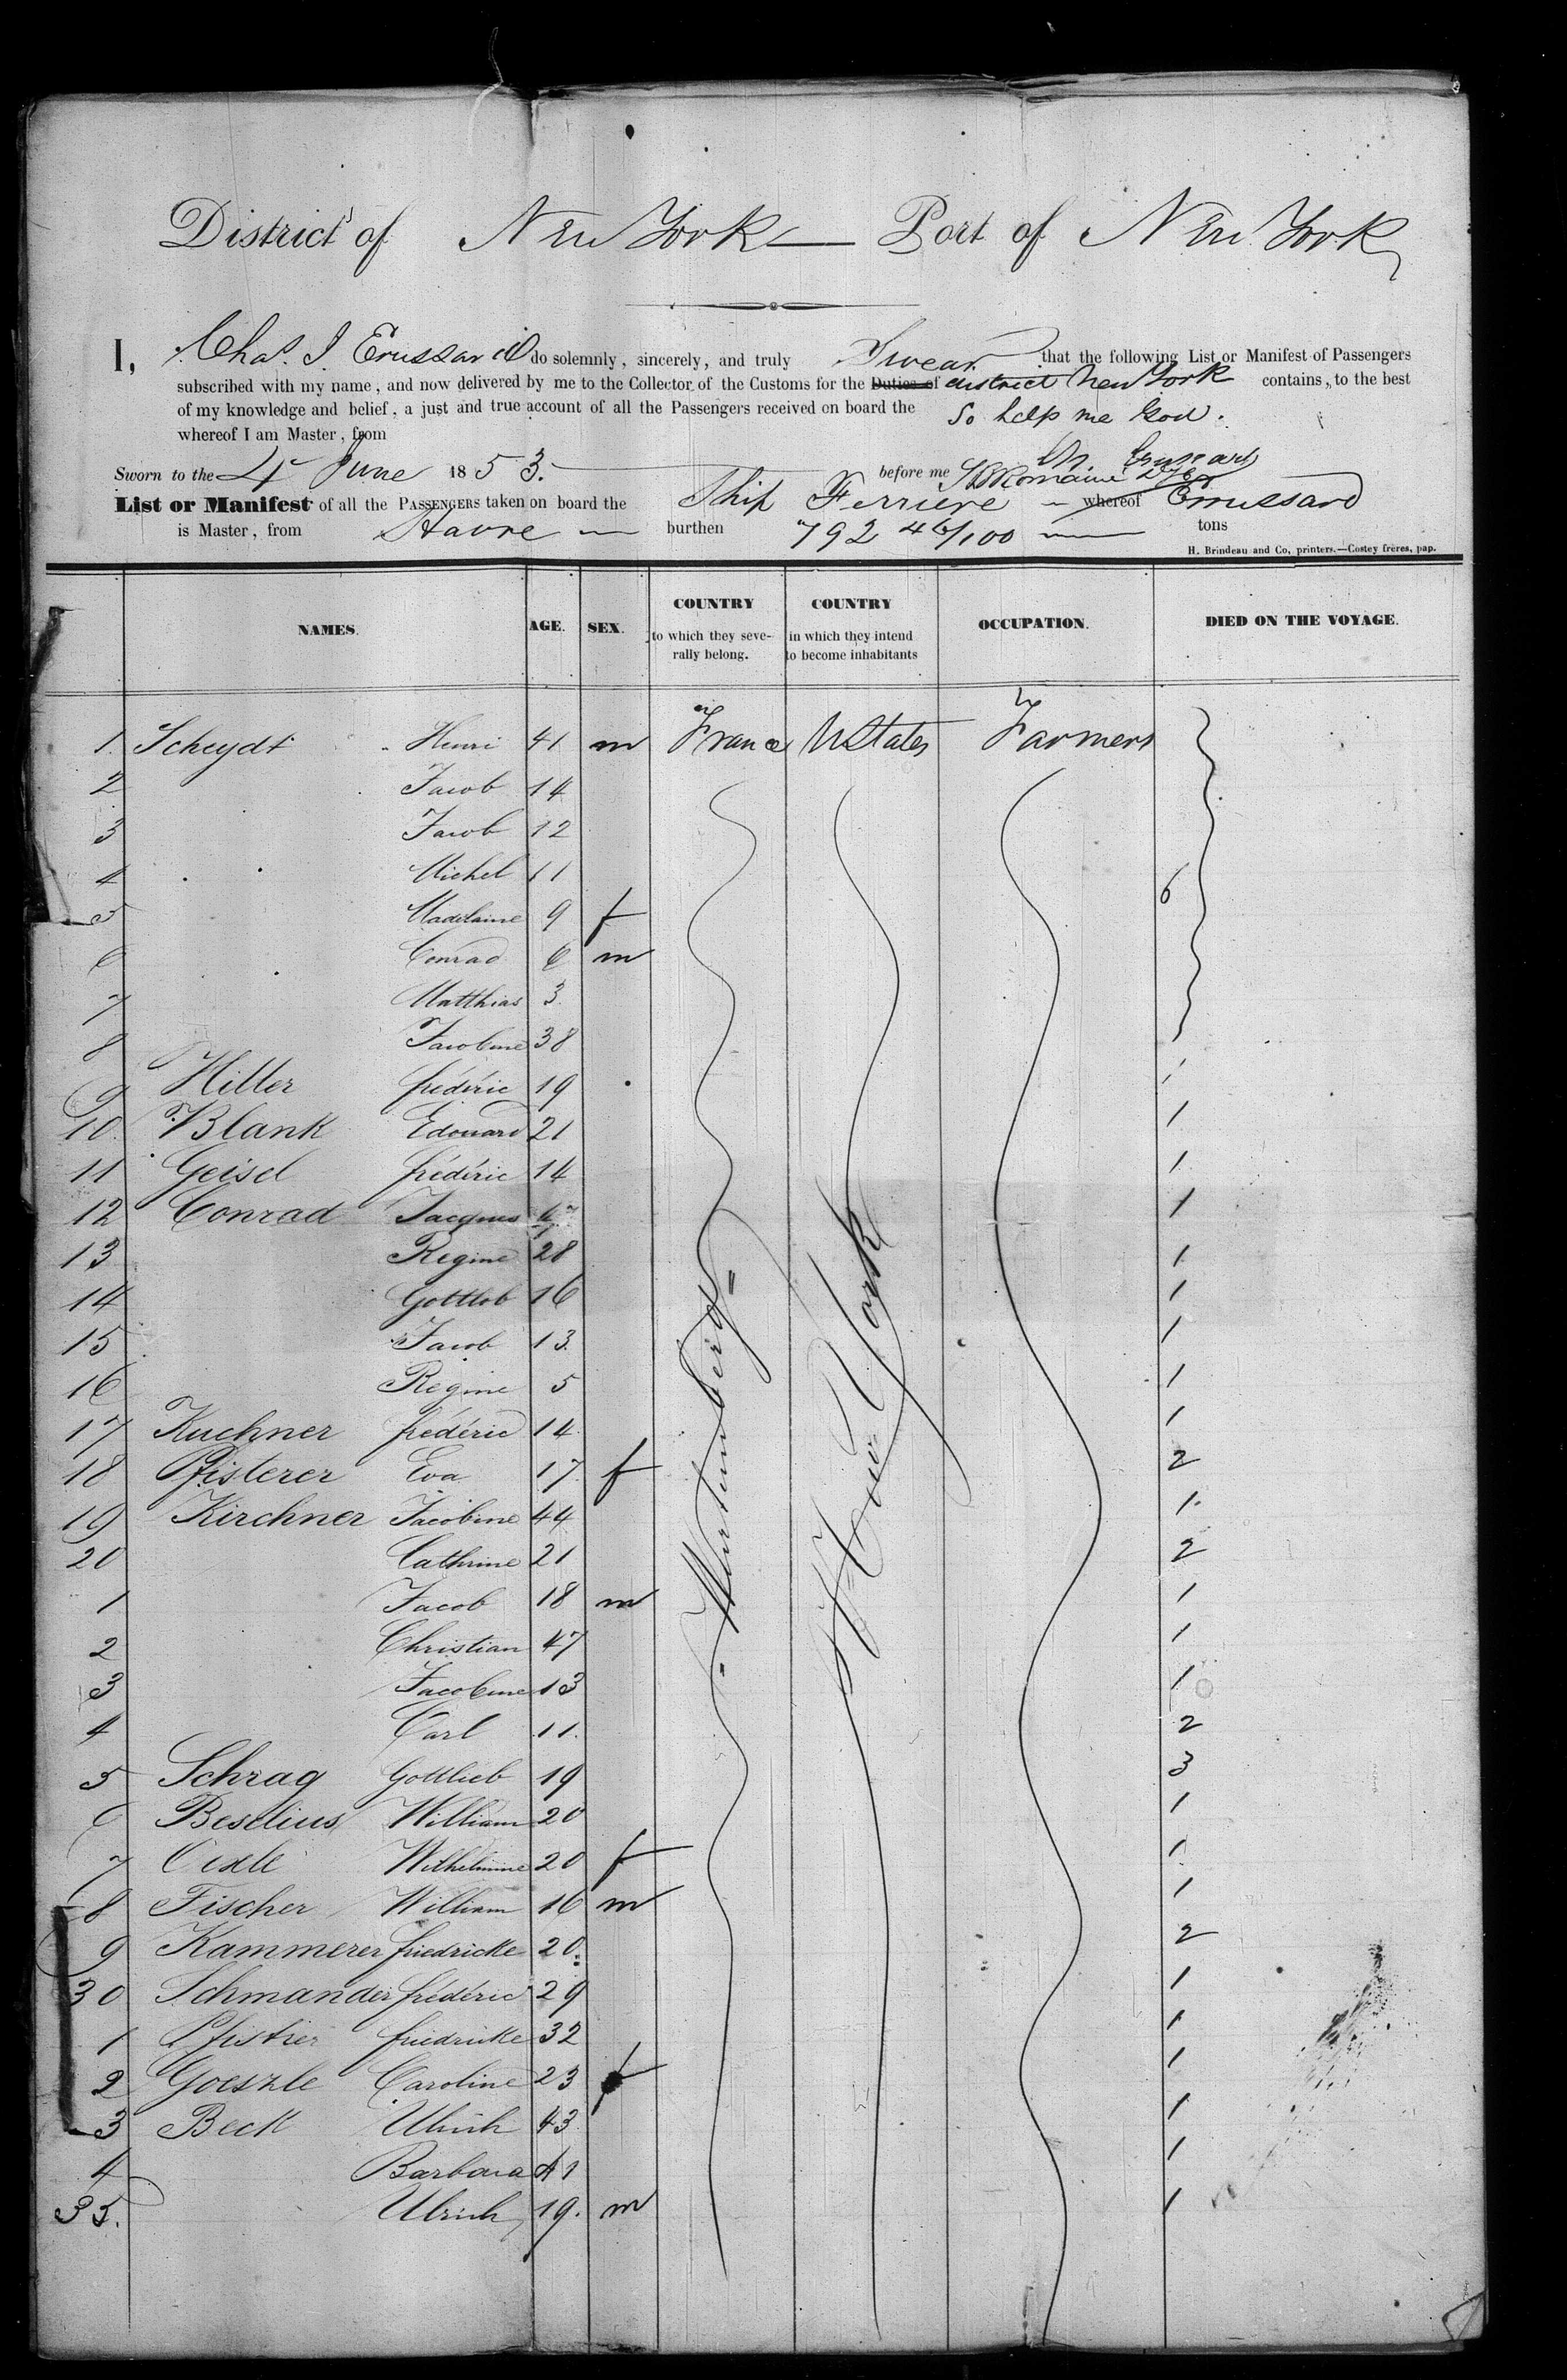 District of New York — Port of New York
I, Chas. J. Erussard do solemnly, sincerely, and truly Swear that the following List or Manifest of Passengers
subscribed with my name, and now delivered by me to the Collector of the Customs for the Duties of district New York contains, to the best
of my knowledge and belief, a just and true account of all the Passengers received on board the So help me God.
whereof I am Master, from
Sworn to the 4 June 1853. before me
List or Manifest of all the PASSENGERS taken on board the Ship Ferriere — whereof Erussard
is Master, from Havre — burthen 792 46/100 — tons
H. Brindeau and Co, printers.—Costey frères, pap.
NAMES. AGE. SEX. COUNTRY to which they severally belong. COUNTRY in which they intend to become inhabitants OCCUPATION. DIED ON THE VOYAGE.
1 Scheydt Henri 41 m France UStates Farmers
2 Jacob 14
3 Jacob 12
4 Michel 11 6
5 Madelaine 9 f
6 Conrad 6 m
7 Matthias 3
8 Jacobine 38
9 Hiller frédéric 19 1
10 Blank Edouard 21 1
11 Geisel frédéric 14 1
12 Conrad Jacques 1
13 Regine 28 1
14 Gottlob 16 1
15 Jacob 13 1
16 Regine 5 1
17 Kuchner frédéric 14 1
18 Pfisterer Eva 17 f 2
19 Kirchner Jacobine 44 1
20 Cathrine 21 2
1 Jacob 18 m 1
2 Christian 47 1
3 Jacobine 13 1
4 Carl 11 2
5 Schrag Gottlieb 19 3
6 Beselius William 20 1
7 Oexle Wilhelmine 20 f 1
8 Fischer William 16 m 1
9 Kammerer friedricke 20 2
30 Schmander frédéric 29 1
1 Pfistier friedricke 32 1
2 Goeszle Caroline 23 f 1
3 Beck Ulrich 43 1
4 Barbara 41 1
35. Ulrich 19. m 1
Wurtemberg
New York